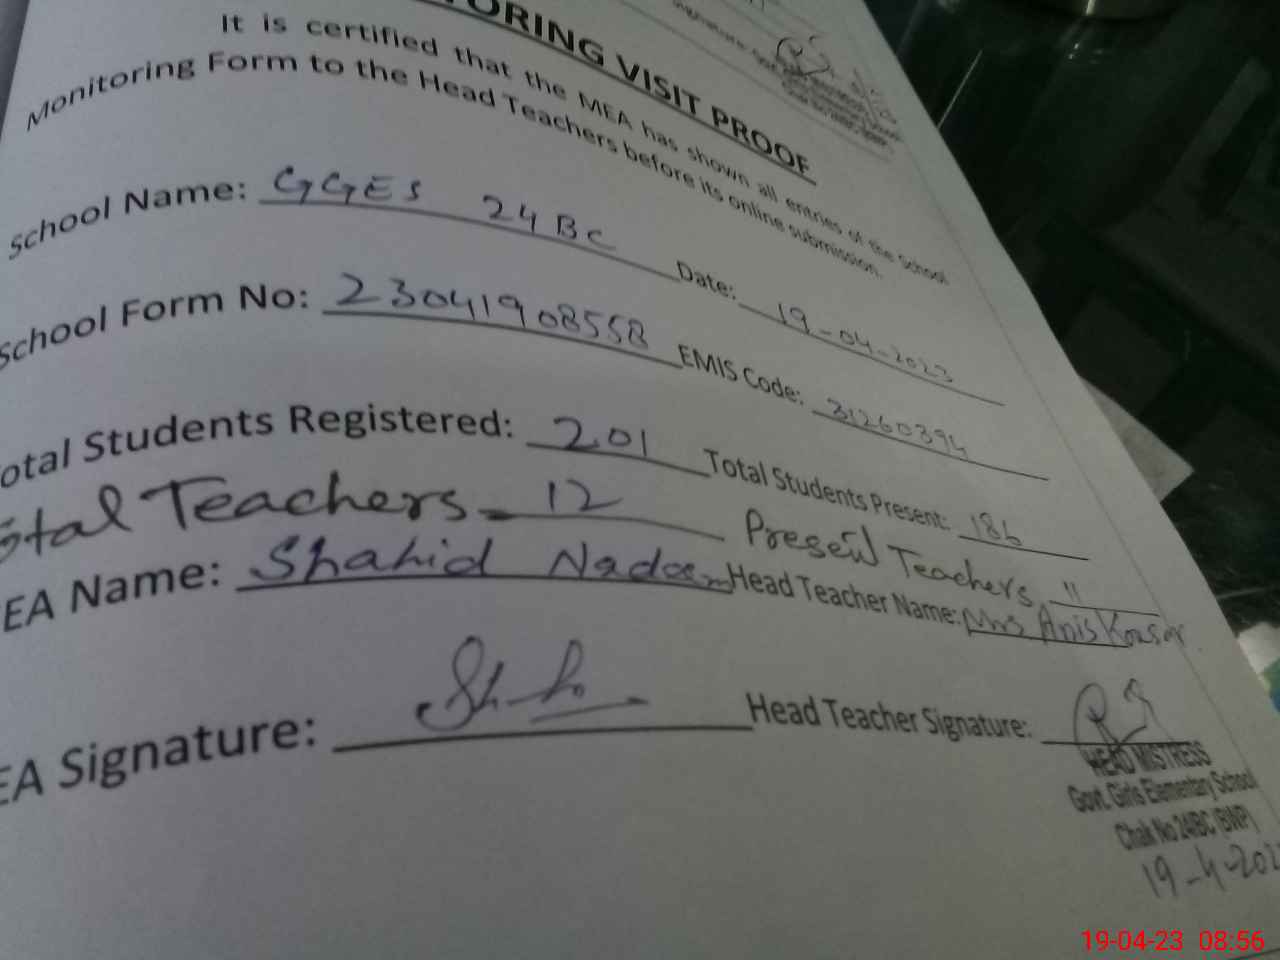 TORING VISIT PROOF
It is certified that the MEA has shown all entries of the School
Monitoring Form to the Head Teachers before its online submission.
School Name: GGES 24 BC Date: 19-04-2023
School Form No: 23041908558 EMIS Code: 31260394
otal Students Registered: 201 Total Students Present: 186
otal Teachers - 12 Present Teachers 11
EA Name: Shahid Nadeem Head Teacher Name: Mrs Anis Kousar
EA Signature: Head Teacher Signature:
HEAD MISTRESS
Govt. Girls Elementary School
Chak No 24/BC (BWP)
19-4-202
19-04-23 08:56